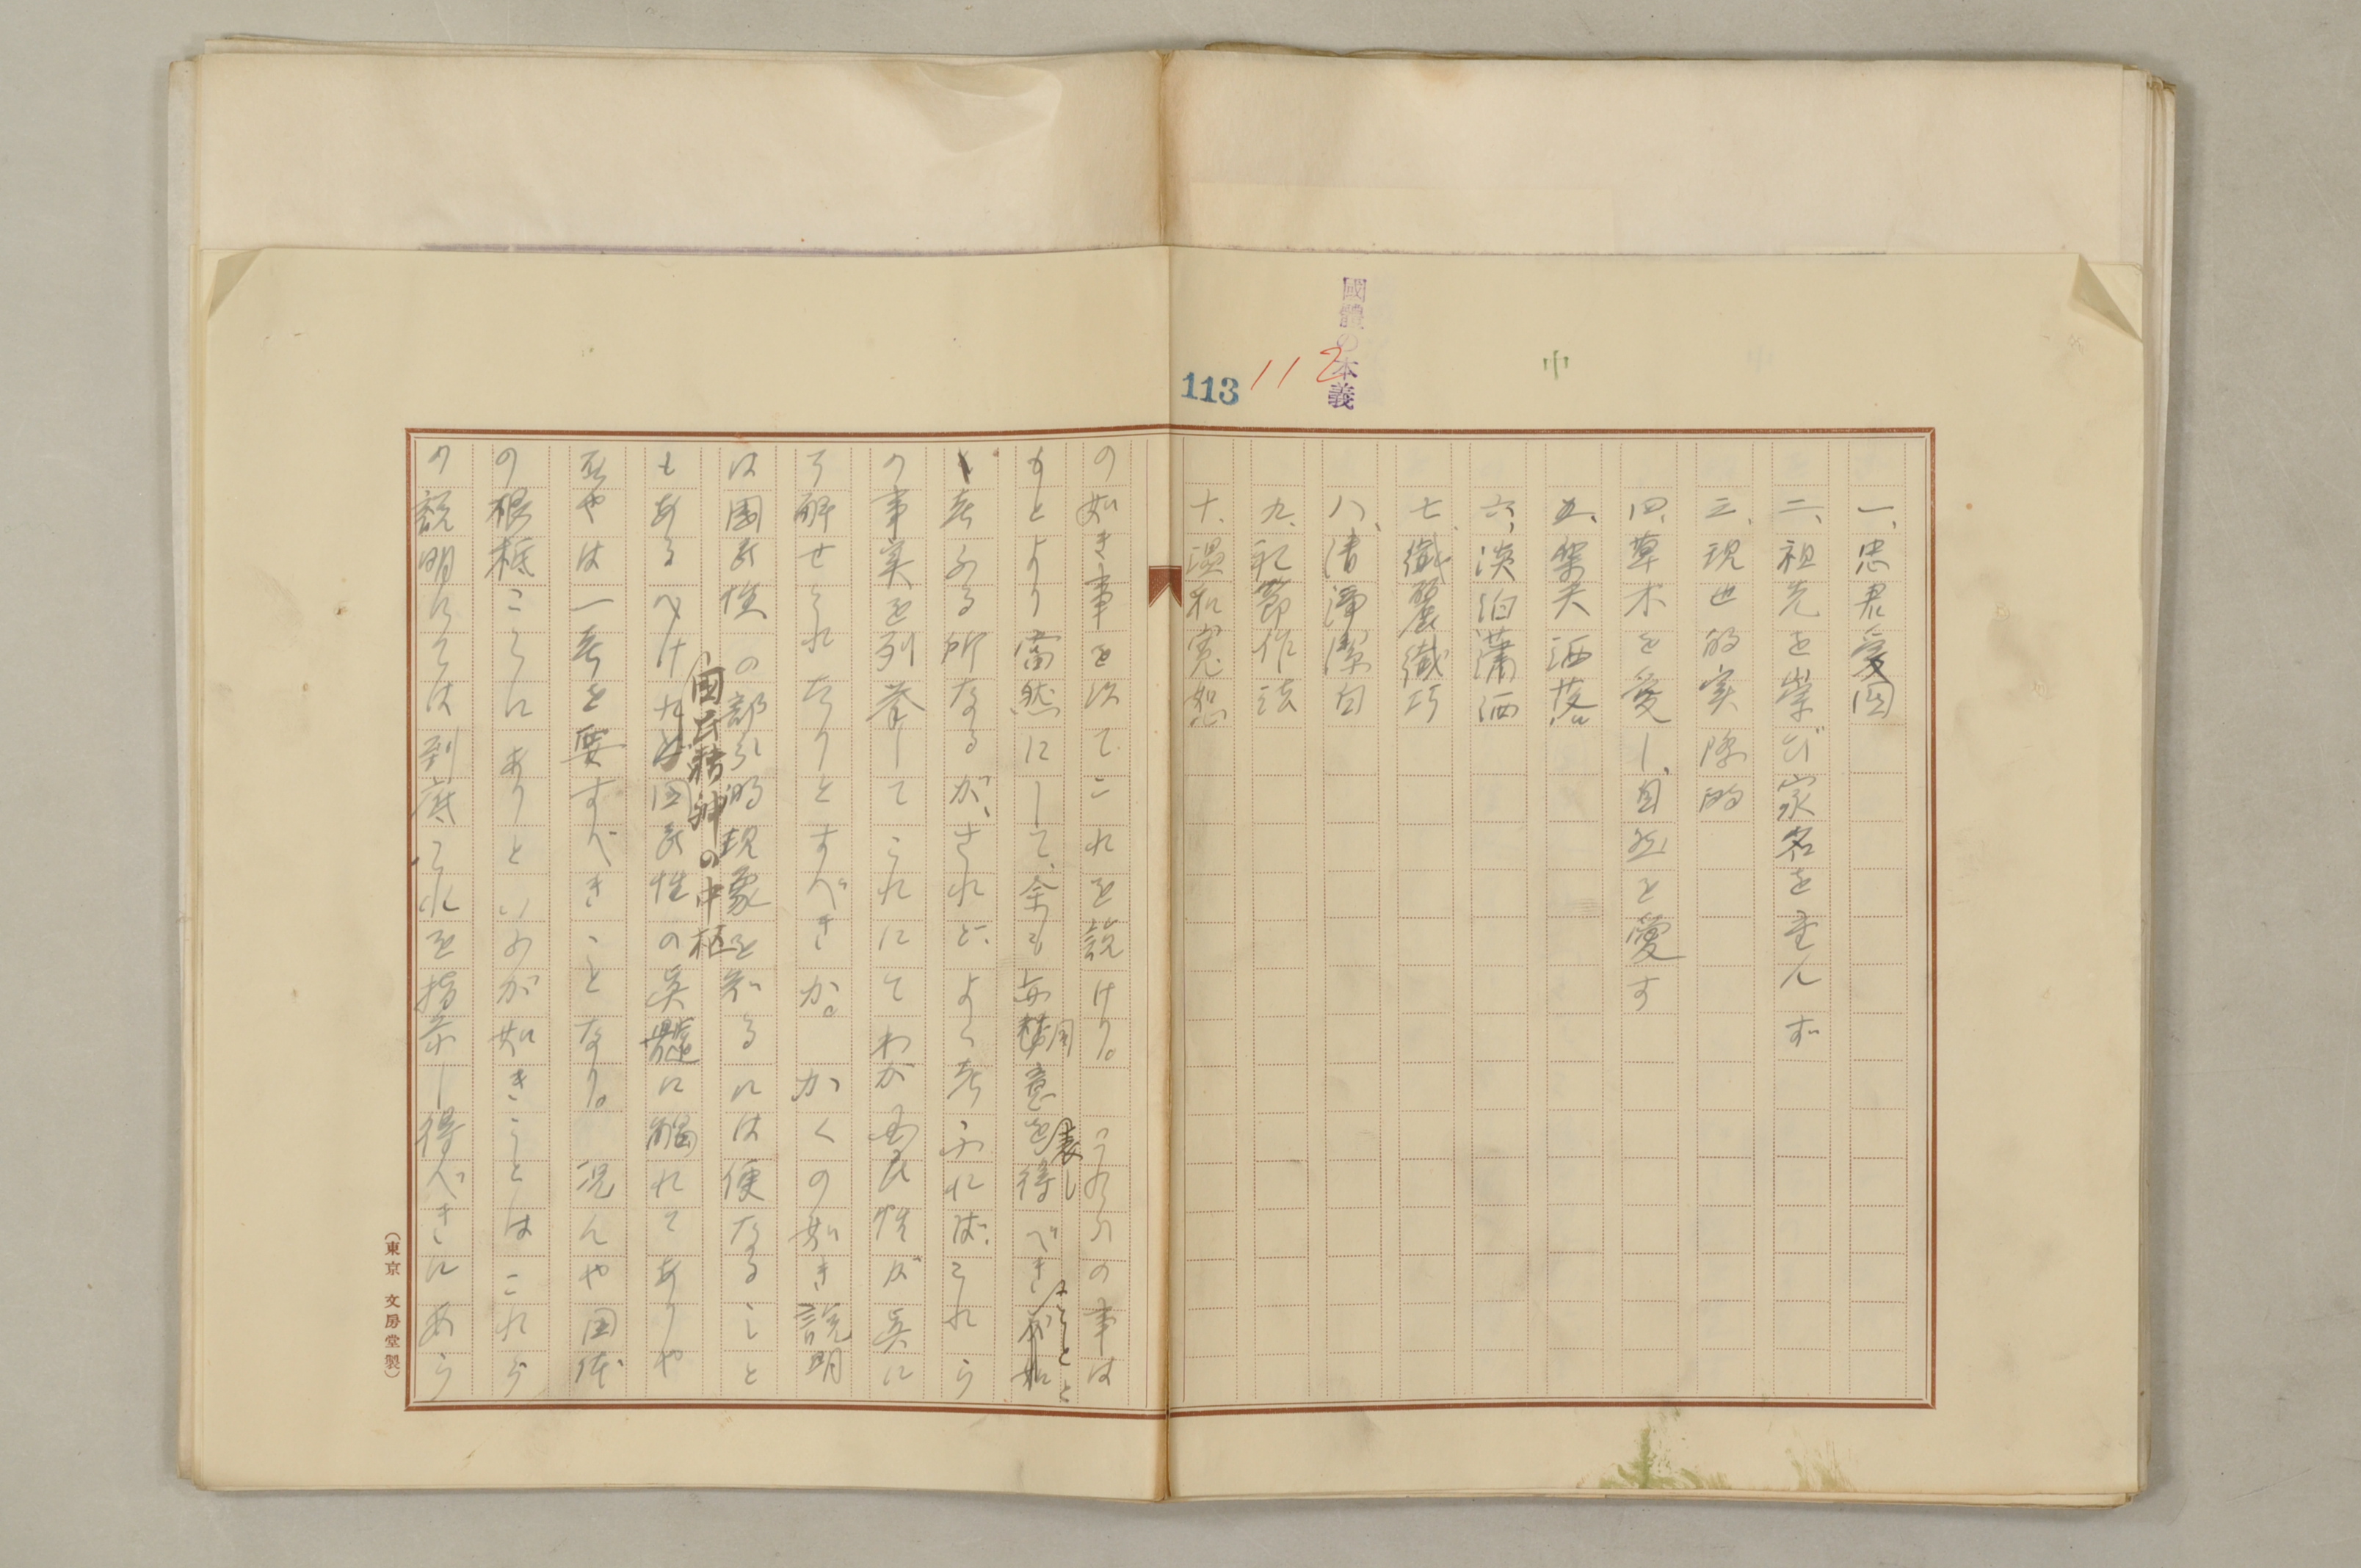 國體の本義
中
112
113
一、忠君愛国
二、祖先を崇び家名を重んず
三、現世的実際的
四、草木を愛し、自然を愛す
五、楽天洒落
六、淡泊瀟洒
七、繊麗繊巧
八、清浄潔白
九、礼節作法
十、温和寛恕
の如き事を以てこれを説けり。これらの事は
もとより当然にして、余も毎
意を表し得べきことと
考ふる所なるが、されど、よく考ふれば、これら
の事実を列挙してこれにてわが国民性が真に
了解せられたりとすべきか。かくの如き説明
は国民性の部分的現象を知るには便なること
もあるべけれど国民性の真髄に触れてありや
国民精神の中枢
否やは一考を要すべきことなり。況んや国体
の根柢こゝにありといふが如きことはこれら
の説明にては到底これを指示し得べきにあら
(東京 文房堂製)